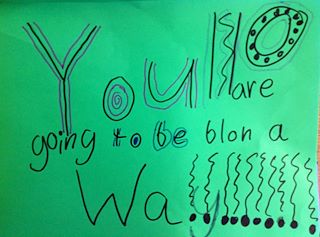 You are
going to be blon a
Way!!!!!!!!!